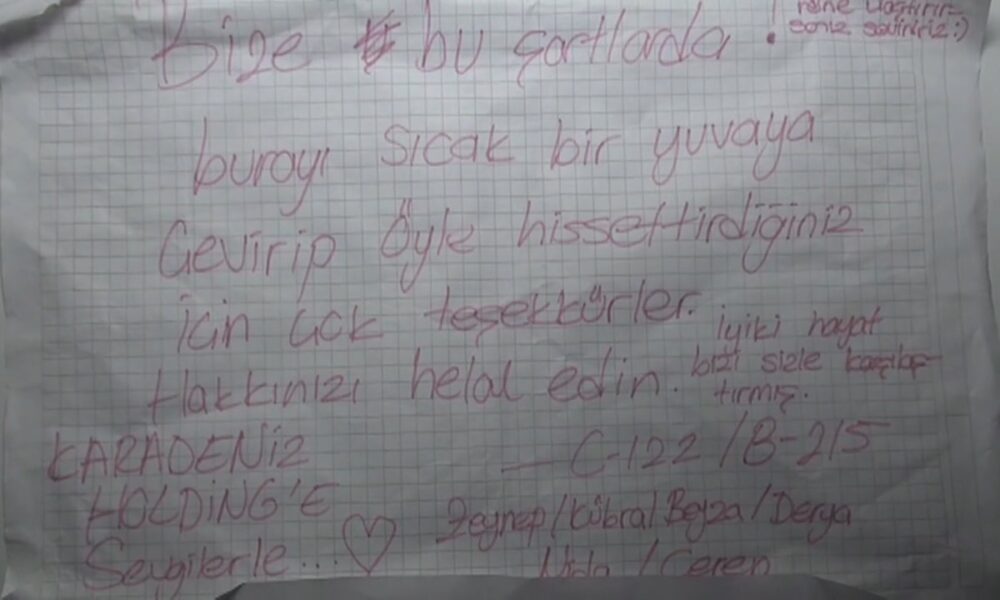 Bize bu şartlarda !
ulaştırır-
burayı sıcak bir yuvaya
Çevirip Öyle hissettirdiğiniz
için çok teşekkürler.
iyiki hayat
bizi sizle karşılaş-
tırmış.
Hakkınızı helal edin.
KARADENİZ
HOLDİNG'E
Sevgilerle...
— C-122 / B-215
Zeynep/Kübra/Beyza/Derya
Nida / Ceren